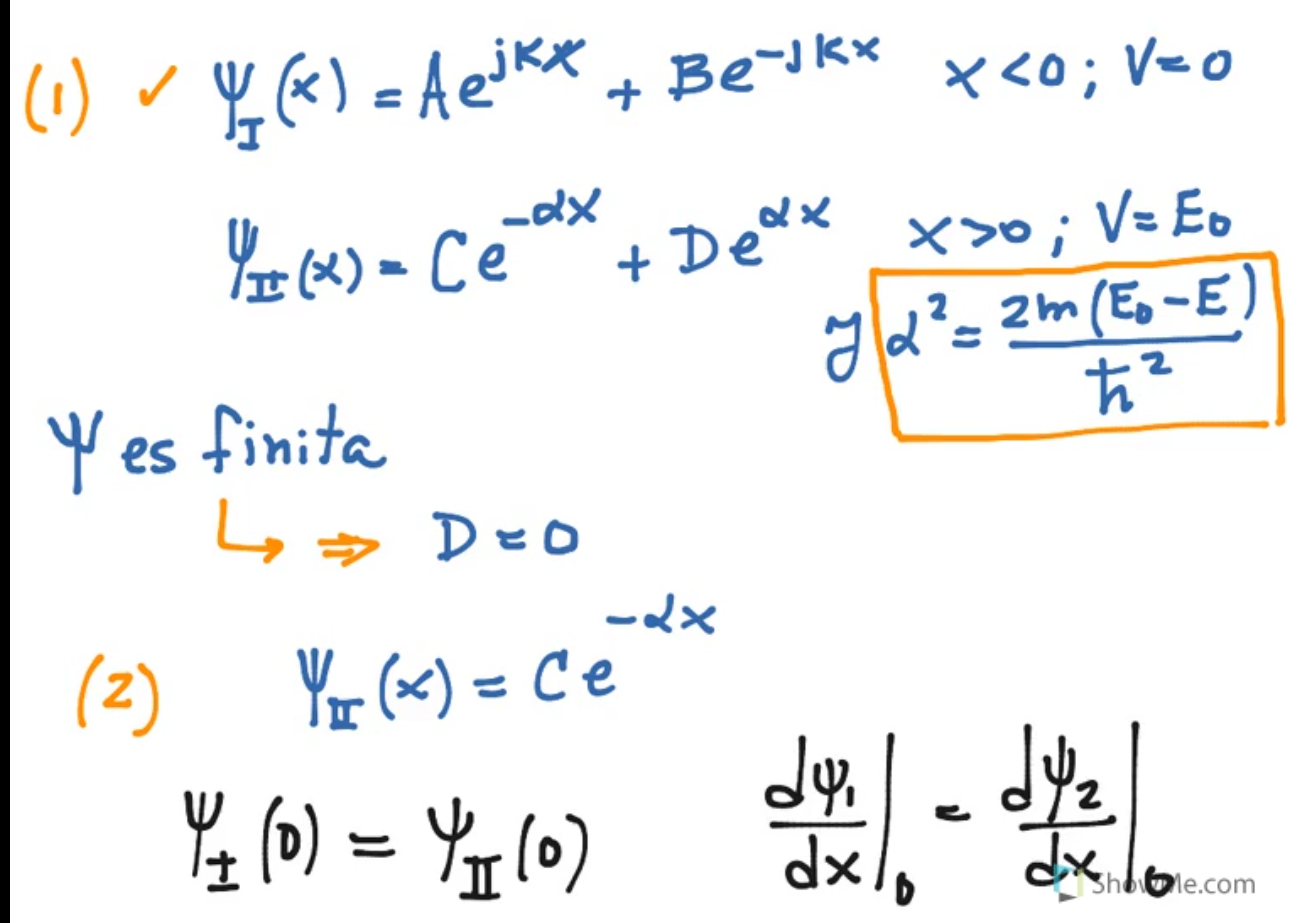 (1) ✓ Ψ_I(x) = Ae^{jKx} + Be^{-jKx}  x<0; V=0
Ψ_II(x) = Ce^{-αx} + De^{αx}  x>0; V=E₀
y α² = 2m(E₀-E)/ħ²
Ψ es finita
↳ ⇒ D=0
(2) Ψ_II(x) = Ce^{-αx}
Ψ_I(0) = Ψ_II(0)  dψ₁/dx|₀ = dψ₂/dx|₀
ShowMe.com